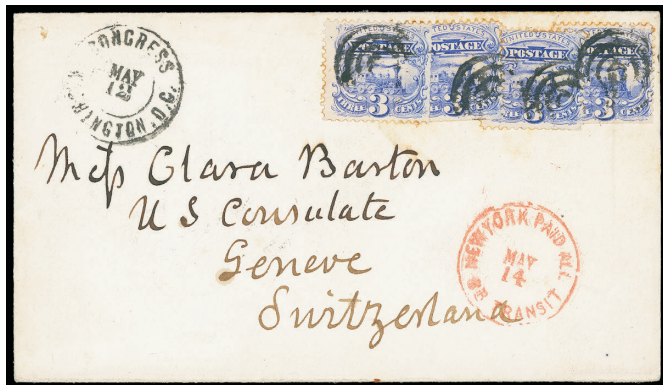 CONGRESS
MAY
12
WASHINGTON D.C.
UNITED STATES
POSTAGE
THREE 3 CENTS
POSTAGE
THREE 3 CENTS
UNITED STATES
POSTAGE
THREE 3 CENTS
POSTAGE
3 CENTS
Miss Clara Barton
US Consulate
Geneve
Switzerland
NEW YORK PAID ALL
MAY
14
BR TRANSIT